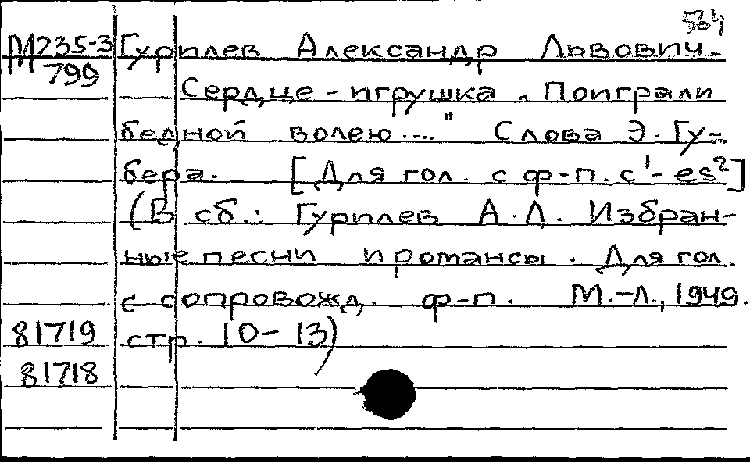 534
М235-3 Гурилев Александр Львович.
799
Сердце - игрушка. Поиграли
бедной волею...." Слова Э. Гу-
бера. [Для гол. с ф-п. c¹- es²]
(В сб.: Гурилев А.Л. Избран-
ные песни и романсы. Для гол.
с сопровожд. ф-п. М.-Л., 1949.
81719 стр. 10-13)
81718